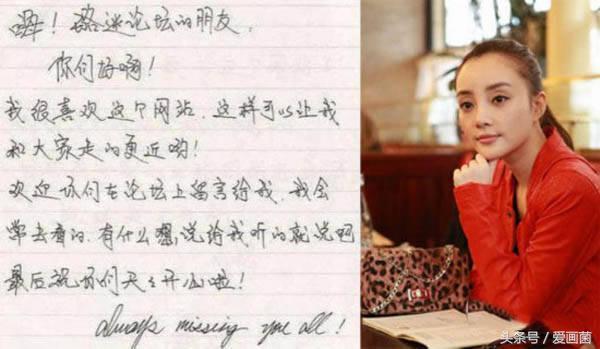 ！璐迷论坛的朋友，
你们好啊！
我很喜欢这个网站，这样可以让我
和大家走的更近哟！
欢迎你们在论坛上留言给我，我会
常去看的，有什么想说给我听的就说吧
最后祝你们天々开心啦！
always missing you all!
头条号／爱画菌